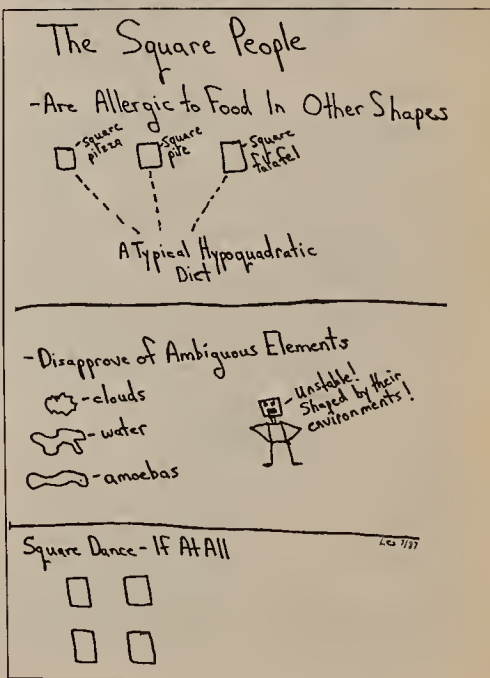 The Square People
-Are Allergic to Food In Other Shapes
-square pitzza
-square pite
-square falafel
A Typical Hypoquadratic
Diet
-Disapprove of Ambiguous Elements
-clouds
-water
-amoebas
-Unstable!
Shaped by their
environments!
Square Dance-If At All